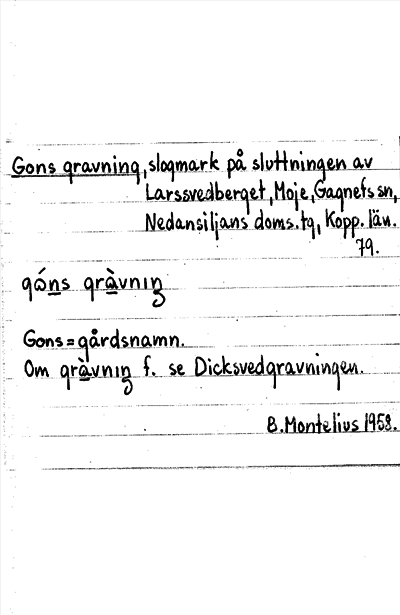 Gons gravning, slogmark på sluttningen av
Larssvedberget, Moje, Gagnefs sn,
Nedansiljans doms.tg, Kopp. län.
79.
gó̲ns grà̲vnıŋ
Gons = gårdsnamn.
Om grà̲vnıŋ f. se Dicksvedgravningen.
B. Montelius 1958.